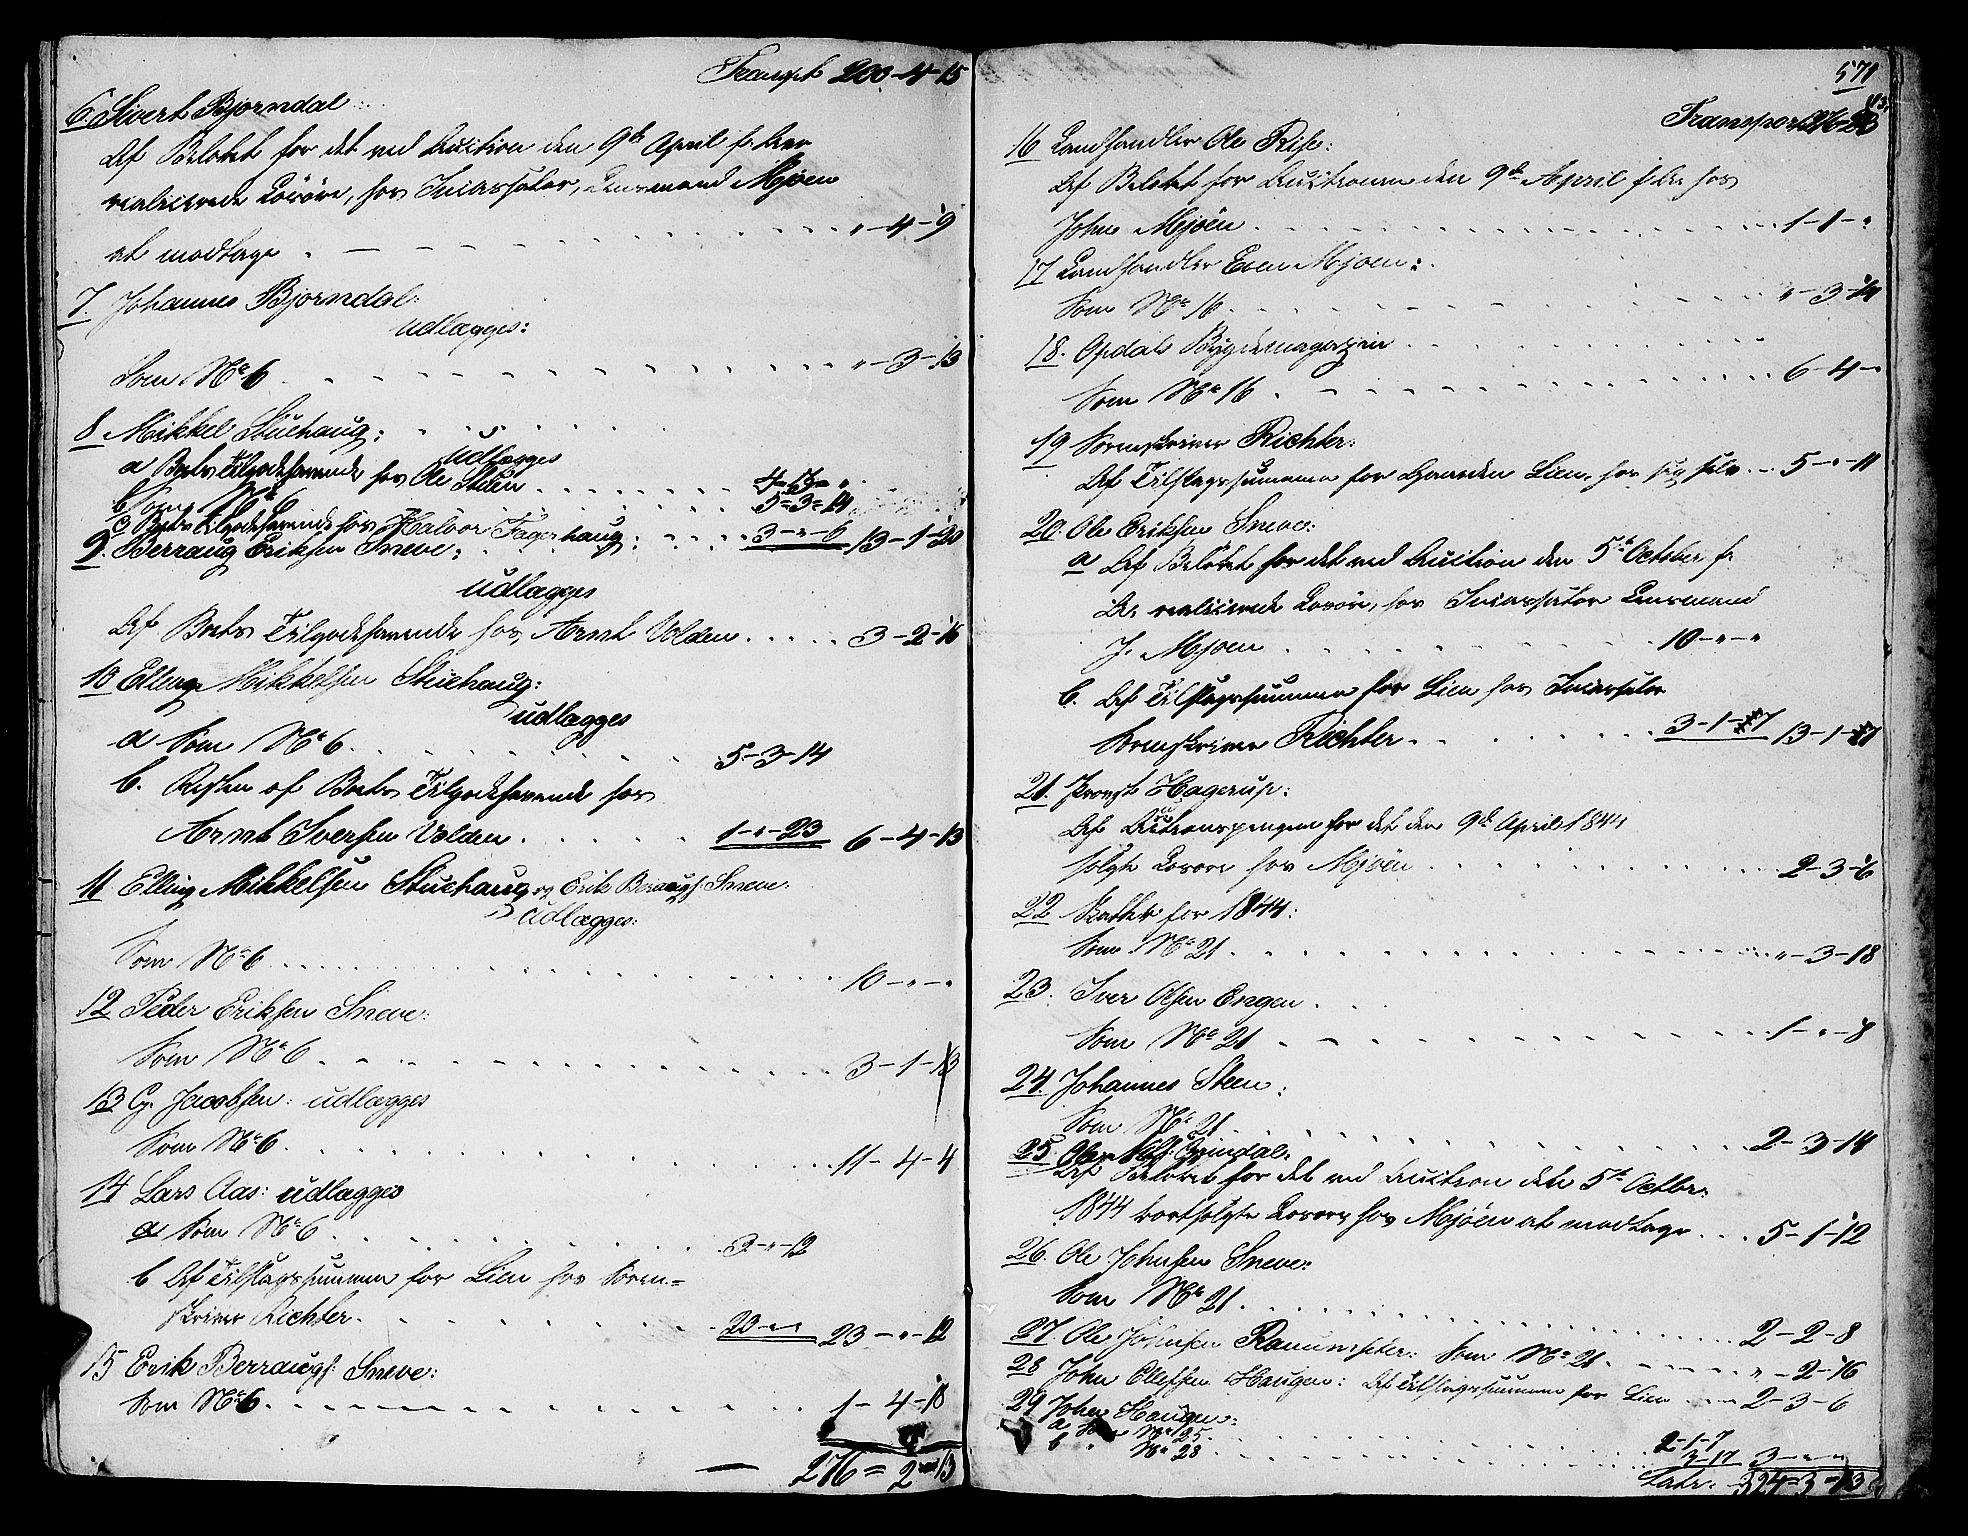 Transpt 200-4-15
6 Sivert Bjørndal
Af Beløbet for det ved Auction den 9de April f. Aar
realiserede Løsøre, hos Incassator, Lensmand Mjøen
at modtage . - . . . " - 4 - 9
7. Johannes Bjørndal:
udlægges:
Som No 6 . . . " - 3 - 13
8 Mikkel Stuehaug:
udlægges
a Boets Tilgodehavende hos Ole Stuen . . . 4-
b Som No 6 5-3-14
c Boets Tilgodehavende hos Halvor Fagerhaug: . . . 3-"-6 13-1-20
9. Berraug Eriksen Sneve:
udlægges
Af Boets Tilgodehavende hos Arnt Volden . . . 3-2-16
10 Elling Mikkelsen Stuehaug:
udlægges
a Som No 6 . . . 5-3-14
b. Resten af Boets Tilgodehavende hos
Arnt Iversen Volden . . . 1-"-23 6-4-13
11 Elling Mikkelsen Stuehaug og Erik Berraugs: Sneve:
udlægges:
Som No 6 . . . 10-"-"
12 Peder Eriksen Sneve:
Som No 6 . . . 3-1-13
13 G. Jacobsen: udlægges
Som No 6 . . . 11-4-4
14 Lars Aas: udlægges
a Som No 6 . . . 3-"-12
b Af Tilslagssummen for Lien hos Soren=
skriver Richter . . . 20-"-" 23-"-12
15 Erik Berraugs: Sneve:
Som No 6 . . . 1-4-18
276=2-13
571
Transport 276-2-13
16 Landhandler Ole Rise:
Af Beløbet for Auctionen den 9de April f. A. hos
John Mjøen . . . 1-1-"
17 Landhandler Even Mjøen:
Som No 16 . . . "-3-14
18. Opdals Bygdemagazin . . .
Som No 16 . . . 6-4-"
19 Sorenskriver Richter:
Af Tilslagssummen for Gaarden Lien, hos sig selv . . . 5-"-11
20. Ole Eriksen Sneve:
a Af Beløbet for det ved Auction den 5te October f.
A. realiserede Løsøre, hos Incassator Lensmand
J. Mjøen . . . 10-"-"
b. Af Tilslagssummen for Lien hos Incassator
Sorenskriver Richter . . . 3-1-7 13-1-7
21. Provst Hagerup:
Af Auctionspengene for det den 9de April 1844
solgte Løsøre hos Mjøen . . . 2-3-6
22 Skatter for 1844:
Som No 21 . . . "-3-18
23. Iver Olsen Engen .
Som No 21 . . . 1-"-8
24. Johannes Steen:
Som No 21 . . . 2-3-14
25
Af Beløbet for det ved Auction den 5te Octbr:
1844 bortsolgte Løsøre hos Mjøen at modtage . . . 5-1-12
26. Ole Johnsen Sneve:
Som No 21 . . . 2-2-8
27. Ole Johnsen Som No 21 . . . "-2-16
28 John Olessen Haugen: Af Tilslagssummen for Lien . . . 2-3-6
29 John Haugen:
a Som No 25 . . . 2-1-7
b " No 28 . . . 3-17 3-"-"
Latr: 324-3-13